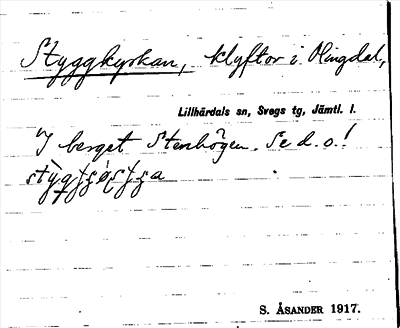 Styggkyrkan, klyftor i Olingdal,
Lillhärdals sn, Svegs tg, Jämtl. l.
I berget Stenhögen. Se d. o.!
S. ÅSANDER 1917.